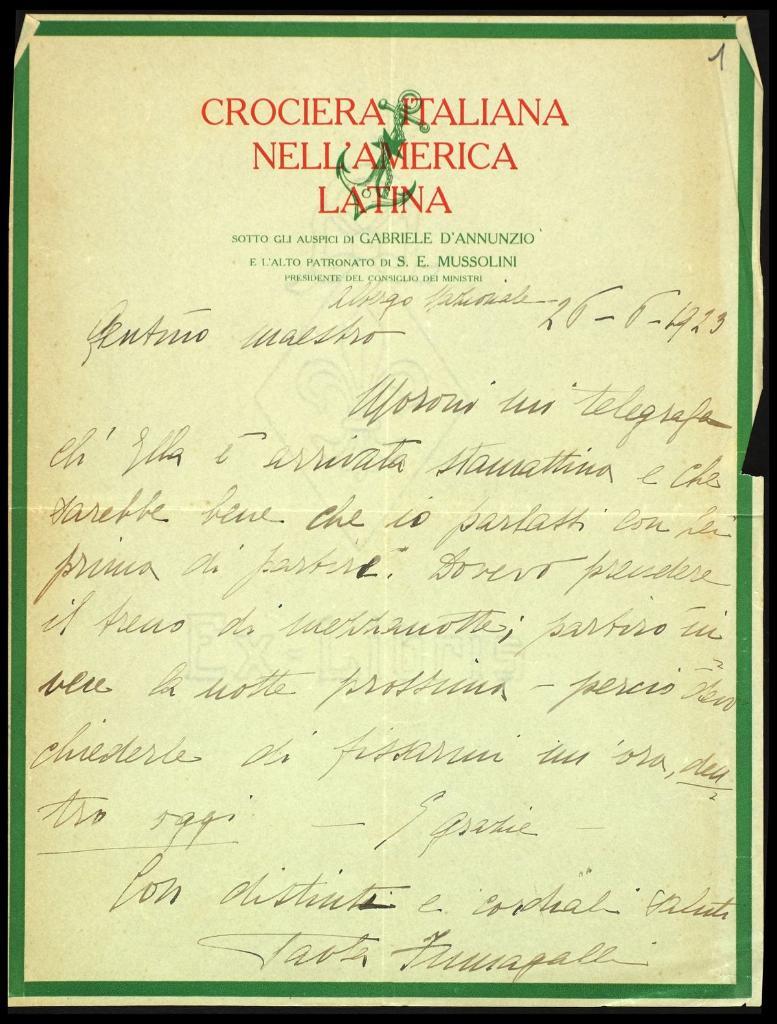 1
CROCIERA ITALIANA
NELL'AMERICA
LATINA
SOTTO GLI AUSPICI DI GABRIELE D'ANNUNZIO
E L'ALTO PATRONATO DI S. E. MUSSOLINI
PRESIDENTE DEL CONSIGLIO DEI MINISTRI
Albergo Nazionale 26-6-1923
Gentmo maestro
Moroni mi telegrafa
ch' Ella è arrivata stamattina e che
sarebbe bene che io parlassi con Lei
prima di partire. Dovevo prendere
il treno di mezzanotte; partirò in
vece la notte prossima - perciò devo
chiederle di fissarmi un'ora, den
tro oggi - E grazie -
Con distinti e cordiali saluti
Paola Fumagalli
EX-LIBRIS